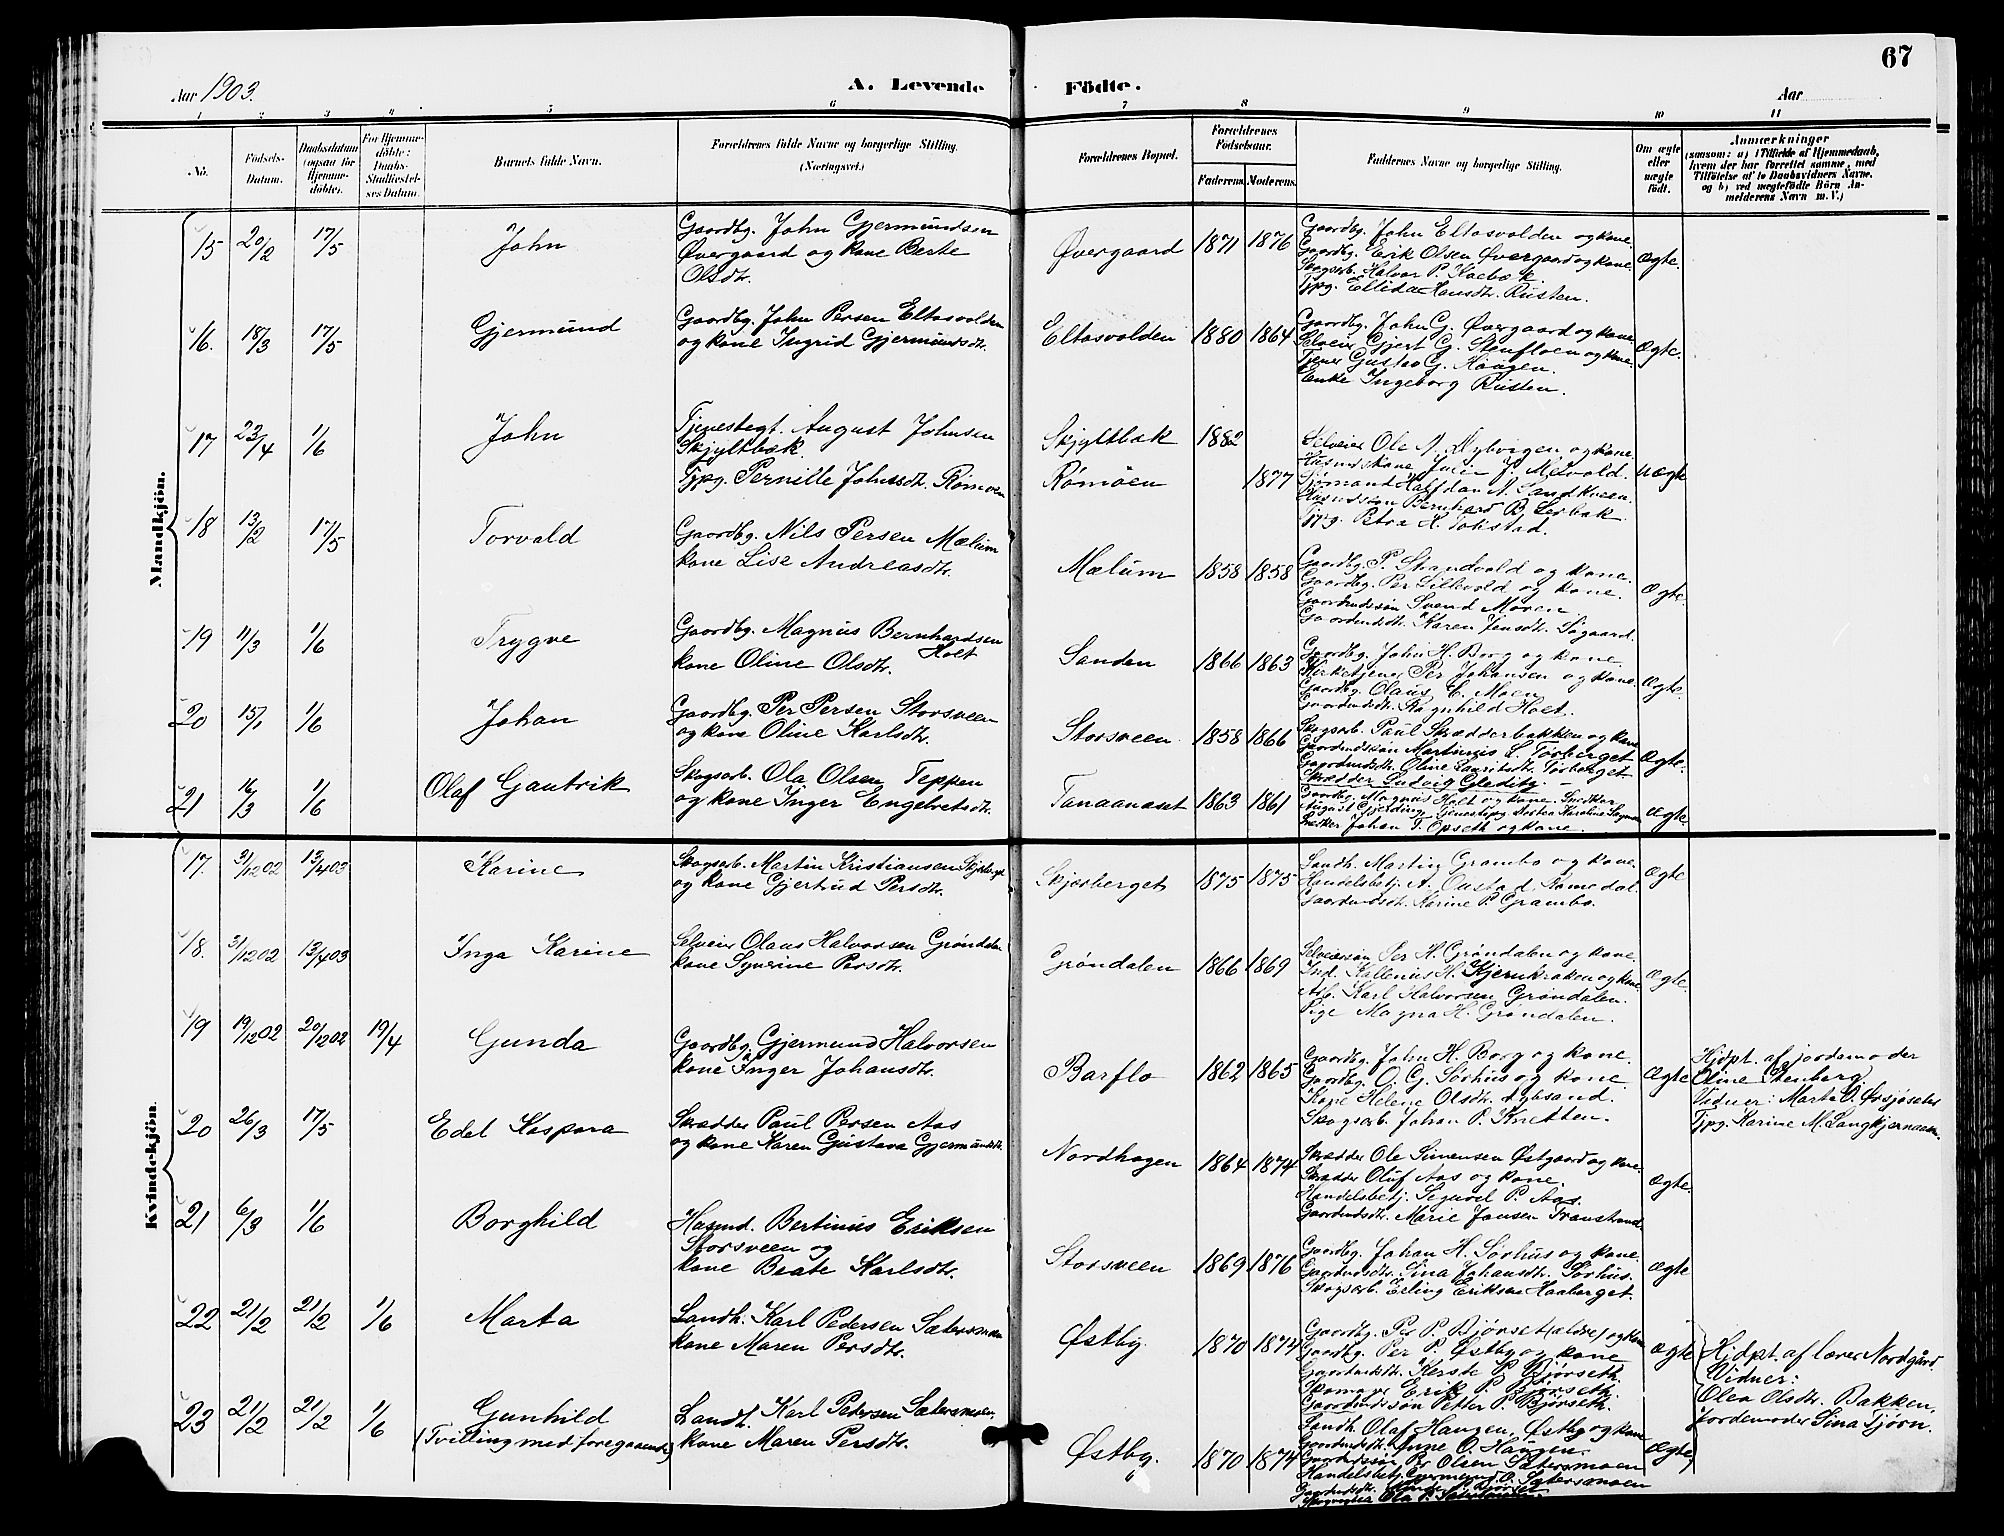 67
Aar 1903.
A. Levende Födte.
Aar
1 2 3 4 5 6 7 8 9 10 11
No.
Födsels-Datum.
Daabsdatum (ogsaa for Hjemmedöbte).
For Hjemmedöbte: Daabs-Stadfestelses Datum.
Barnets fulde Navn.
Forældrenes fulde Navne og borgerlige Stilling. (Næringsvei.)
Forældrenes Bopæl.
Forældrenes Födselsaar.
Faderens. Moderens.
Faddernes Navne og borgerlige Stilling.
Om ægte eller uægte födt.
Anmærkninger
(saasom: a) i Tilfælde af Hjemmedaab, hvem der har forrettet samme, med Tilföielse af to Daabsvidners Navne, og b) ved uægtefödte Börn Anmelderens Navn m. V.)
Mandkjön.
15 20/2 17/5 John
Gaardbg. John Gjermundsen
Øvergaard og kone Berte
Olsdtr.
Øvergaard 1871 1876
Gaardbg. John Eltasvolden og kone.
Gaardbg. Erik Olsen Øvergaard og kone.
Skogsarb. Halvor P. Kvebæk
Tjpg. Ellida Hansdtr. Rusten.
Ægte.
16. 18/3 17/5 Gjermund
Gaardbg. John Persen Eltasvolden
og kone Ingrid Gjermundsdtr.
Eltasvolden 1880 1864
Gaardbg. John G. Øvergaard og kone.
Selveier Gjert G. Stenfloen og kone.
Tjener Gustav G. Haugen.
Enke Ingeborg Rusten.
Ægte.
17 22/4 1/6 John
Tjenestegt. August Johnsen
Skjyltbæk.
Tjpg. Pernille Johnsdtr. Rømoen
Skjyltbæk 1882
Rømoen 1877
Selveier Ole A. Nybvigen og kone
Husmdskone Julie J. Melvold.
Sjømand Halfdan A. Sandkveen.
Husmdssøn Bernhard B. Lerbak.
Tjpg. Petra H. Tokstad.
uægte
18 13/2 17/5 Torvald
Gaardbg. Nils Persen Mælum
kone Lise Andreasdtr.
Mælum 1858 1858
Gaardbg. P. Strandvold og kone.
Gaardbg. Per Lillevold og kone.
Gaardmdssøn Svend Moren.
Gaardmdsdtr. Karen Jensdtr. Søgaard.
Ægte.
19 11/3 1/6 Trygve
Gaardbg. Magnus Bernhardsen
Holt
kone Oline Olsdtr.
Sanden 1866 1863
Gaardbg. John H. Borg og kone.
Kirketjener Per Johansen og kone.
Gaardbg. Olaus E. Moen.
Gaardmdsdtr. Ragnhild Holt.
Ægte.
20 15/1 1/6 Johan
Gaardbg. Per Persen Storsveen
og kone Oline Karlsdtr.
Storsveen 1858 1866
Skogsarb. Paul Skrædderbakken og kone
Gaardmdssøn Martinius L. Torberget
Gaardmdsdtr. Oline Lauritsdtr. Torberget
Skrædder Ludvig Gleditz.
Ægte.
21 16/3 1/6 Olaf Gautrik
Skogsarb. Ola Olsen Teppen
og kone Inger Engebretsdtr.
Tanaanæset 1863 1861
Gaardbg. Magnus Holt og kone. Snedker
Snedker Johan T. Opseth og kone.
Ægte.
Kvindekjön.
17. 31/12 02 13/4 03 Karine
Skogsarb. Martin Kristiansen Skjæsberget
og kone Gjertrud Persdtr.
Skjæsberget 1875 1875
Landh. Martin Grambo og kone.
Handelsbetj. A. Oustad, Romedal.
Gaardmdsdtr. Karine P. Grambo.
Ægte
18. 31/12 02 13/4 03 Inga Karine
Selveier Olaus Halvorsen Grøndalen
kone Syverine Persdtr.
Grøndalen 1866 1869
Selveiersøn Per H. Grøndalen og kone.
Ind. Kallenius H. Kjernbraken og kone.
Arb. Karl Halvorsen Grøndalen.
Pige Magna H. Grøndalen.
Ægte.
19 19/12 02 20/12 02 19/4 Gunda
Gaardbg. Gjermund Halvorsen
kone Inger Johansdtr.
Barflo 1862 1865
Gaardbg. John H. Borg og kone.
Gaardbg. O. G. Sørhus og kone.
Kone Helene Olsdtr. Nybsand.
Skogsarb. Johan P. Knetten.
Ægte
Hjdpt. af jordemoder
Oline Stenberg.
Vidner: Marta O.Ørsjøsæter
Tjpg. Karine M. Langkjernaasen.
20 26/3 17/5 Edel Kaspara
Skrædder Paul Persen Aas
og kone Karen Gustava Gjermundsdtr.
Nordhagen 1864 1874
Skrædder Ole Simensen Østgaard og kone.
Skrædder Oluf Aas og kone.
Handelsbetj. Sigurd P. Aas.
Gaardmdsdtr. Marie Jansen Transtrand.
Ægte.
21 6/3 1/6 Borghild
Husmd. Bertinus Eriksen
Storsveen og
kone Beate Karlsdtr.
Storsveen 1869 1876
Gaardbg. Johan H. Sørhus og kone
Gaardmdsdtr. Sina Johansdtr. Sørhus.
Skogsarb. Erling Eriksen Haaberget.
Ægte
22 21/2 21/2 1/6 Marta
Landh. Karl Pedersen Sætersmoen
kone Maren Persdtr.
Østby 1870 1874
Gaardbg. Per P. Bjørset (aldre) og kone
Gaardbg. Per P. Østby og kone
Gaardmdsdtr. Kerste P. Bjørseth.
Skomager Erik P. Bjørseth.
Gaardmdssøn Petter P. Bjørseth.
Ægte
Hjdpt. af lærer Nordgård
Vidner:
Olea Olsdtr. Bakken,
jordemoder Sina Tjørn.
23 21/2 21/2 1/6 Gunhild
(Tvilling med foregaaende)
Landh. Karl Pedersen Sætersmoen,
kone Maren Persdtr.
Østby. 1870 1874
Landh. Olaf Haugen, Østby og kone
Gaardmdsdtr. Anne O. Haugen.
Gaardmdssøn Per Olsen Sætersmoen
Handelsbetj. Gjermund O. Sætersmoen
Ægte